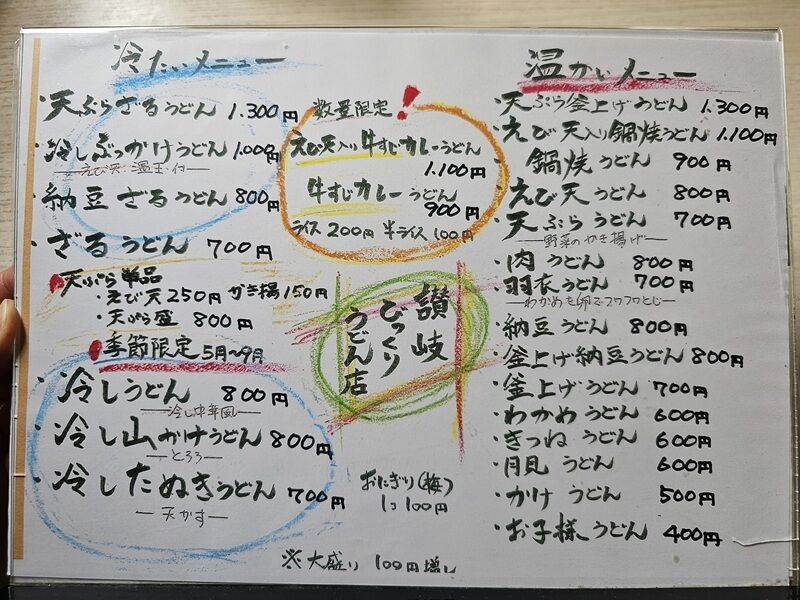 冷たいメニュー
・天ぷらざるうどん 1.300円
・冷しぶっかけうどん 1.000円
えび天 温玉付
・納豆ざるうどん 800円
・ざるうどん 700円
天ぷら単品
・えび天250円 かき揚150円
・天ぷら盛 800円
季節限定 5月〜9月
・冷しうどん 800円
冷し中華風
・冷し山かけうどん 800円
とろろ
・冷したぬきうどん 700円
天かす
数量限定!
えび天入り牛すじカレーうどん
1.100円
牛すじカレーうどん
900円
ライス200円 半ライス100円
讃岐
びっくり
うどん店
おにぎり(梅)
1コ 100円
※大盛り 100円増し
温かいメニュー
・天ぷら釜上げうどん 1.300円
・えび天入り鍋焼うどん 1.100円
・鍋焼うどん 900円
・えび天うどん 800円
・天ぷらうどん 700円
野菜のかき揚げ
・肉うどん 800円
・羽衣うどん 700円
わかめを卵でフワフワとじ
・納豆うどん 800円
・釜上げ納豆うどん 800円
・釜上げうどん 700円
・わかめうどん 600円
・きつねうどん 600円
・月見うどん 600円
・かけうどん 500円
・お子様うどん 400円